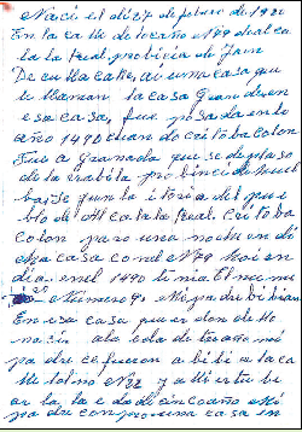 Naci el di 27 de febrero de 1921
En la calle de locaño Nº79 de alca
la la Real probicia de Jaen
De en lla calle, ai una casa que
le llaman la casa Grande en
esa casa, fue posada en lo
año 1490 cuando cristoba colon
Fue a Granada que se
de la rrabila probincia
la itoria del pue
blo de Alcala la Real. Cristoba
colon paro una noche en di
cha casa co nel Nº79 Hoi en
dia. en el 1490 tenia El nume
Numero 9. Mi padre bibian
En esa casa que es donde llo
naci a la eda de tre año mi
padre se fueron a bibi a la ca
lle Nº22 y alli estube
a la la eda de cinco año Mi
padre conpro una casa en